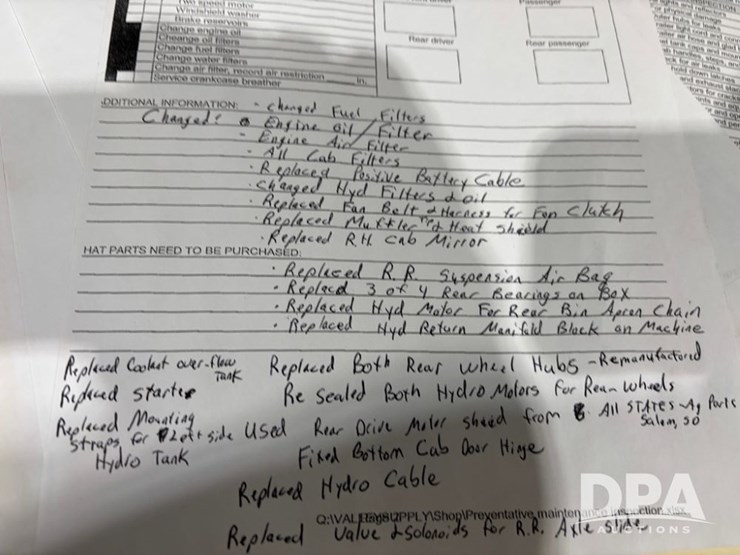 Two speed motor
Windshield washer
Brake reservoirs
Change engine oil
Change oil filters
Change fuel filters
Change water filters
Change air filter, record air restriction in.
Service crankcase breather
Rear driver
Passenger
Rear passenger
DDITIONAL INFORMATION: - Changed Fuel Filters
Changed: Engine Oil / Filter
- Engine Air Filter
- All Cab Filters
· Replaced Positive Battery Cable
· Changed Hyd Filters & oil
· Replaced Fan Belt & Harness for Fan Clutch
· Replaced Muffler and Heat Sheild
· Replaced R.H. Cab Mirror
HAT PARTS NEED TO BE PURCHASED:
· Replaced R.R. Suspension Air Bag
· Replacd 3 of 4 Rear Bearings on Box
· Replaced Hyd Motor For Rear Bin Apron Chain
· Replaced Hyd Return Manifold Block on Machine
Replaced Coolant over-flow Tank
Replaced Both Rear Wheel Hubs - Remanufactured
Replaced starter
Re Sealed Both Hydro Motors For Rear Wheels
Replaced Mounting straps for left side Hydro Tank
Used Rear Drive Motor from All STATES Ag Parts Salem, SD
Fixed Bottom Cab Door Hinge
Replaced Hydro Cable
Shop\Preventative maintenance inspection.xlsx
Replaced Valve & Solonoids for R.R. Axle slide
DPA
AUCTIONS